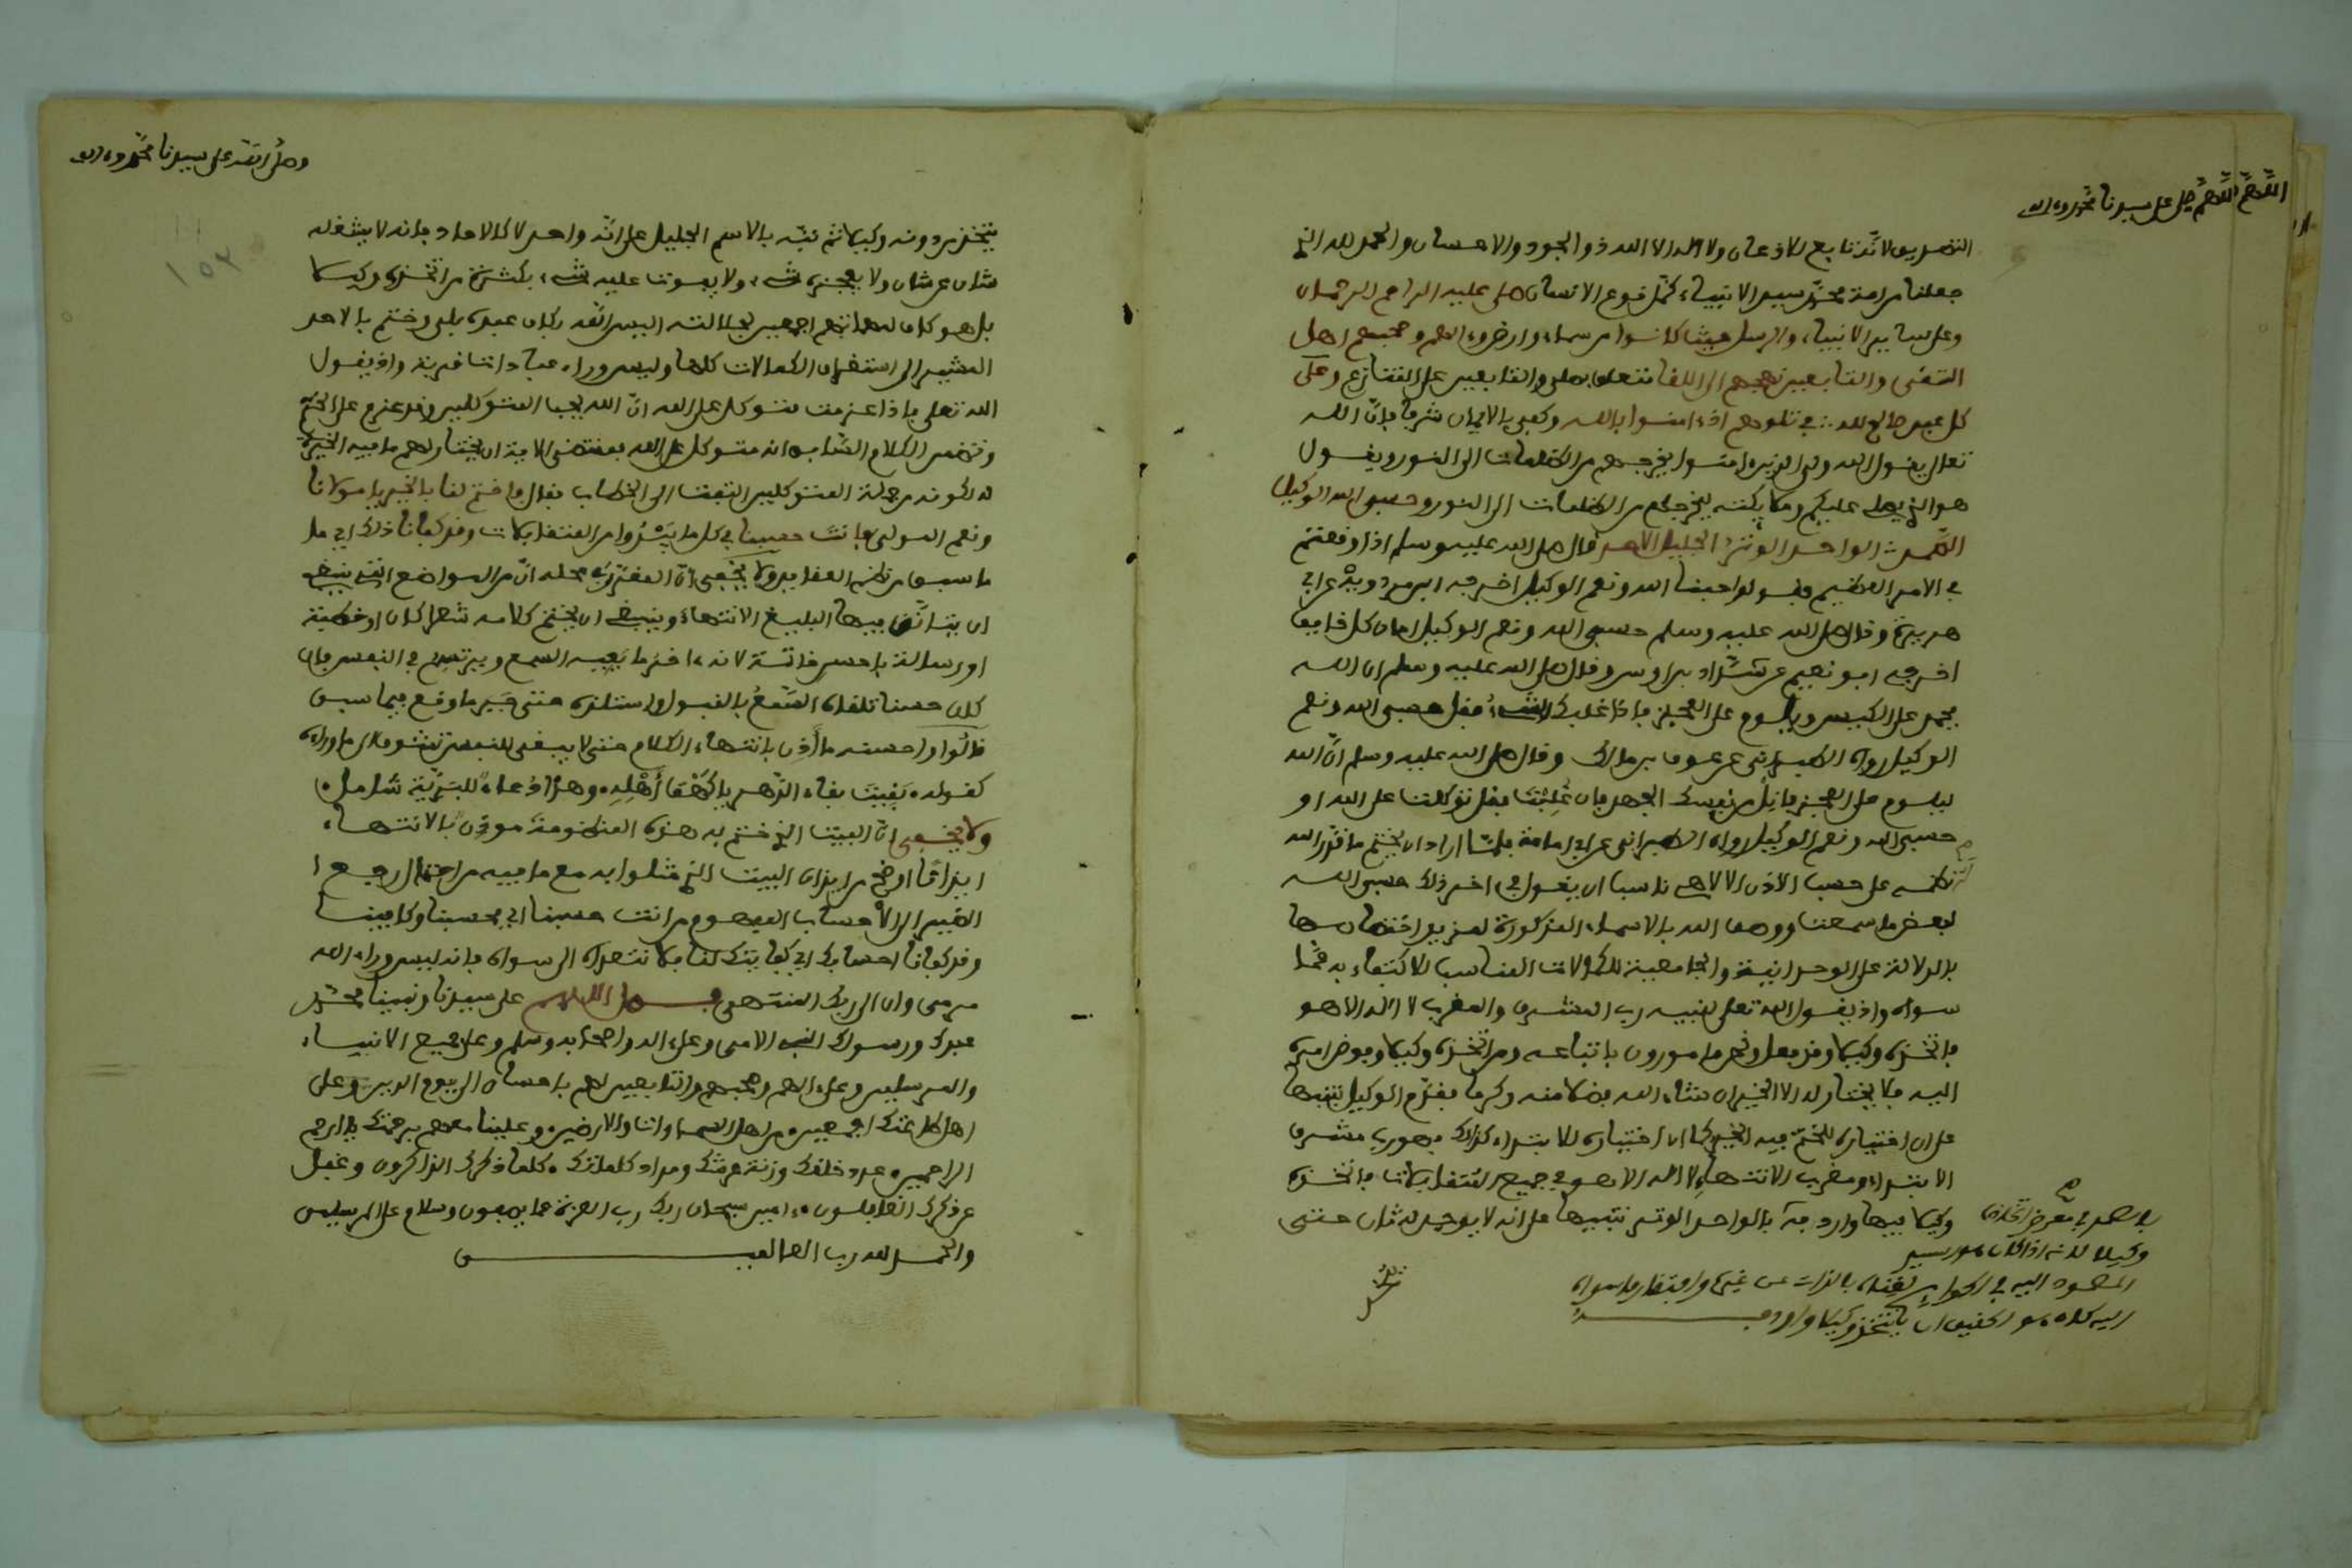 اللهم صل على سيدنا محمد وءاله
التصديق لأنه تابع للاذعان ولا اله الا الله ذو الجود والاحسان والحمد لله الذي
جعلنا من امة محمد سيد الانبياء كمل نوع الانسان صلى عليه الراحم الرحمان
وعلى ساير الانبياء والرسل حيث كانوا من سماء وارض وءالهم وصحبهم اهل
التقى والتابعين نهجهم الى اللقا
كل عبد صالح لله في تلوهم اذ ءامنوا بالله وكفى بالايمان شرفا فان الله
تعالى يقول الله ولي الذين ءامنوا يخرجهم من الظلمات الى النور ويقول
هو الذي يصلي عليكم وملايكته ليخرجكم من الظلمات الى النور وحسبي الله الوكيل
الصمد الواحد الوتر الجليل الاحد قال صلى الله عليه وسلم اذا وقعتم
في الامر العظيم فقولوا حسبنا الله ونعم الوكيل اخرجه ابن مردويه عن ابي
هريرة وقال صلى الله عليه وسلم حسبي الله ونعم الوكيل امان كل خايف
اخرجه ابو نعيم عن شداد بن اوس وقال صلى الله عليه وسلم ان الله
يحمد على الكيس ويلوم على العجز فاذا غلبك الشيء فقل حسبي الله ونعم
الوكيل رواه الطبراني عن عوف بن مالك وقال صلى الله عليه وسلم ان الله
يلوم على العجز فابل من نفسك الجهد فان غلبت فقل توكلت على الله او
حسبي الله ونعم الوكيل رواه الطبراني عن ابي امامة فلما اراد ان يختم ما قدر الله
نظمه على حسب الاذن الالاهي ناسب ان يقول في اخر ذلك حسبي الله
لبعض ما سمعت ووصف الله بالاسماء المذكورة لمزيد اختصاصها
بالدلالة على الوحدانية والجامعية للكمالات المناسب الاكتفاء به عما
سواه واذ يقول الله تعلى لنبيه رب المشرق والمغرب لا اله الا هو
فاتخذه وكيلا وقد فعل ونحن مامورون باتباعه ومن اتخذه وكيلا وفوض امره
اليه فلا يختار له الا الخير ان شاء الله فضلا منه وكرما فقدم الوكيل تنبيها
على ان اختياره للختم فيه الخير كما ان اختياره للابتداء كذلك فهو رب مشرق
الابتداء ومغرب الانتهاء لا اله الا هو في جميع التقلبات فاتخذه
وكيلا فيها واردفه بالواحد الوتر تنبيها على انه لا يوجد له ثان حتى
وكيلا لانه اذا كان هو السيد
المصمود اليه في الحوايج لغناه بالذات عن غيره وافتقار ما سواه
اليه كان هو الحقيق ان يتخذ وكيلا واردفه
يتخذ
وصلى الله على سيدنا محمد وءاله
يتخذ من دونه وكيلا ثم نبه بالاسم الجليل على انه واحد لا كالاحاد فانه لا يشغله
شان عن شان ولا يعجزه شيء ولا يفوت عليه شيء بكثرة من اتخذه وكيلا
بل هو كاف لهم اجمعين بجلالته اليس الله بكاف عبده بلى وختم بالاحد
المشير الى استغراق الكمالات كلها وليس وراء عبادان قرية واذ يقول
الله تعلى فاذا عزمت فتوكل على الله ان الله يحب المتوكلين وقد عزم على الختم
وتضمن الكلام السابق انه متوكل على الله بمقتضى الاية ان يختار لهم ما فيه الخيرة
له لكونه من جملة المتوكلين التفت الى الخطاب فقال فاختم لنا بالخير يا مولانا
ونعم المولى فانت حسبنا في كل ما يتلوا من التقلبات وقد كفانا ذلك اي ما
ما سبق من نظم العقايد ولا يخفى ان المقرر في محله ان من المواضع التي ينبغي
ان يتانق فيها البليغ الانتهاء وينبغي ان يختم كلامه شعرا كان او خطبة
او رسالة باحسن خاتمة لانه ءاخر ما يعيه السمع ويرتسم في النفس فان
كان حسنا تلقاه السمع بالقبول واستلذه حتى جبر ما وقع فيما سبق
قالوا واحسنه ما أذن بانتهاء الكلام حتى لا يبقى للنفس تشوف الى ما وراءه
كقوله بقيت بقاء الدهر يا كهف أهله وهذا دعاء للبرية شامل
ولا يخفى ان البيت الذي ختم به هذه المنظومة موذن بالانتهاء
ايذانا اوضح من ايذان البيت الذي مثلوا به مع ما فيه من احتمال رجوع
الضمير الى الاحساب المفهوم من انت حسبنا اي محسبنا وكافينا
وقد كفانا احسابك اي كفايتك لنا فلا نتعداه الى سواه فانه ليس وراء الله
مرمى وان الى ربك المنتهى وصل اللهم على سيدنا ونبينا محمد
عبدك ورسولك النبي الامي وعلى ءاله واصحابه وسلم وعلى جميع الانبياء
والمرسلين وعلى ءالهم وصحبهم والتابعين لهم باحسان الى يوم الدين وعلى
اهل طاعتك اجمعين من اهل السماوات والارضين وعلينا معهم برحمتك يا ارحم
الراحمين عدد خلقك وزنة عرشك ومداد كلماتك كلما ذكرك الذاكرون وغفل
عن ذكرك الغافلون ءامين سبحان ربك رب العزة عما يصفون وسلام على المرسلين
والحمد لله رب العالمين